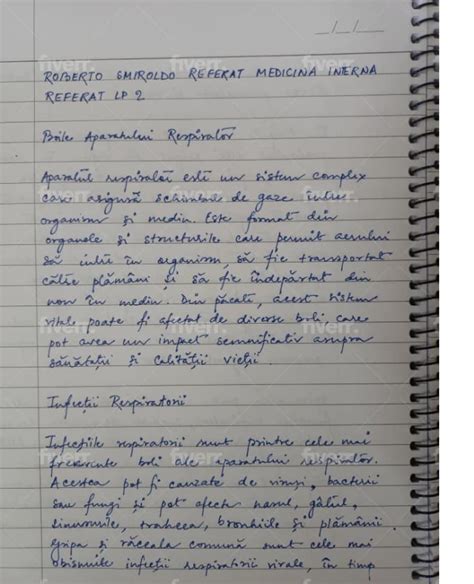 ROBERTO SMIROLDO REFERAT MEDICINA INERNA
REFERAT LP 2
Boile Aparatului Respirator
Aparatul respirator este un sistem complex
care asigură schimbul de gaze între
organism și mediu. Este format din
organele și structurile care permit aerului
să intre în organism, să fie transportat
către plămâni și să fie îndepărtat din
nou în mediu. Din păcate, acest sistem
vital poate fi afectat de diverse boli, care
pot avea un impact semnificativ asupra
sănătații și calității vieții.
Infecții Respiratorii
Infecțiile respiratorii sunt printre cele mai
frecvente boli ale aparatului respirator.
Acestea pot fi cauzate de viruși, bacterii
sau fungi și pot afecta nasul, gâtul,
sinusurile, traheea, bronhiile și plămânii.
Gripa și răceala comună sunt cele mai
obișnuite infecții respiratorii virale, în timp
fiverr.
fiverr.
fiverr.
fiverr.
fiverr.
fiverr.
fiverr.
fiverr.